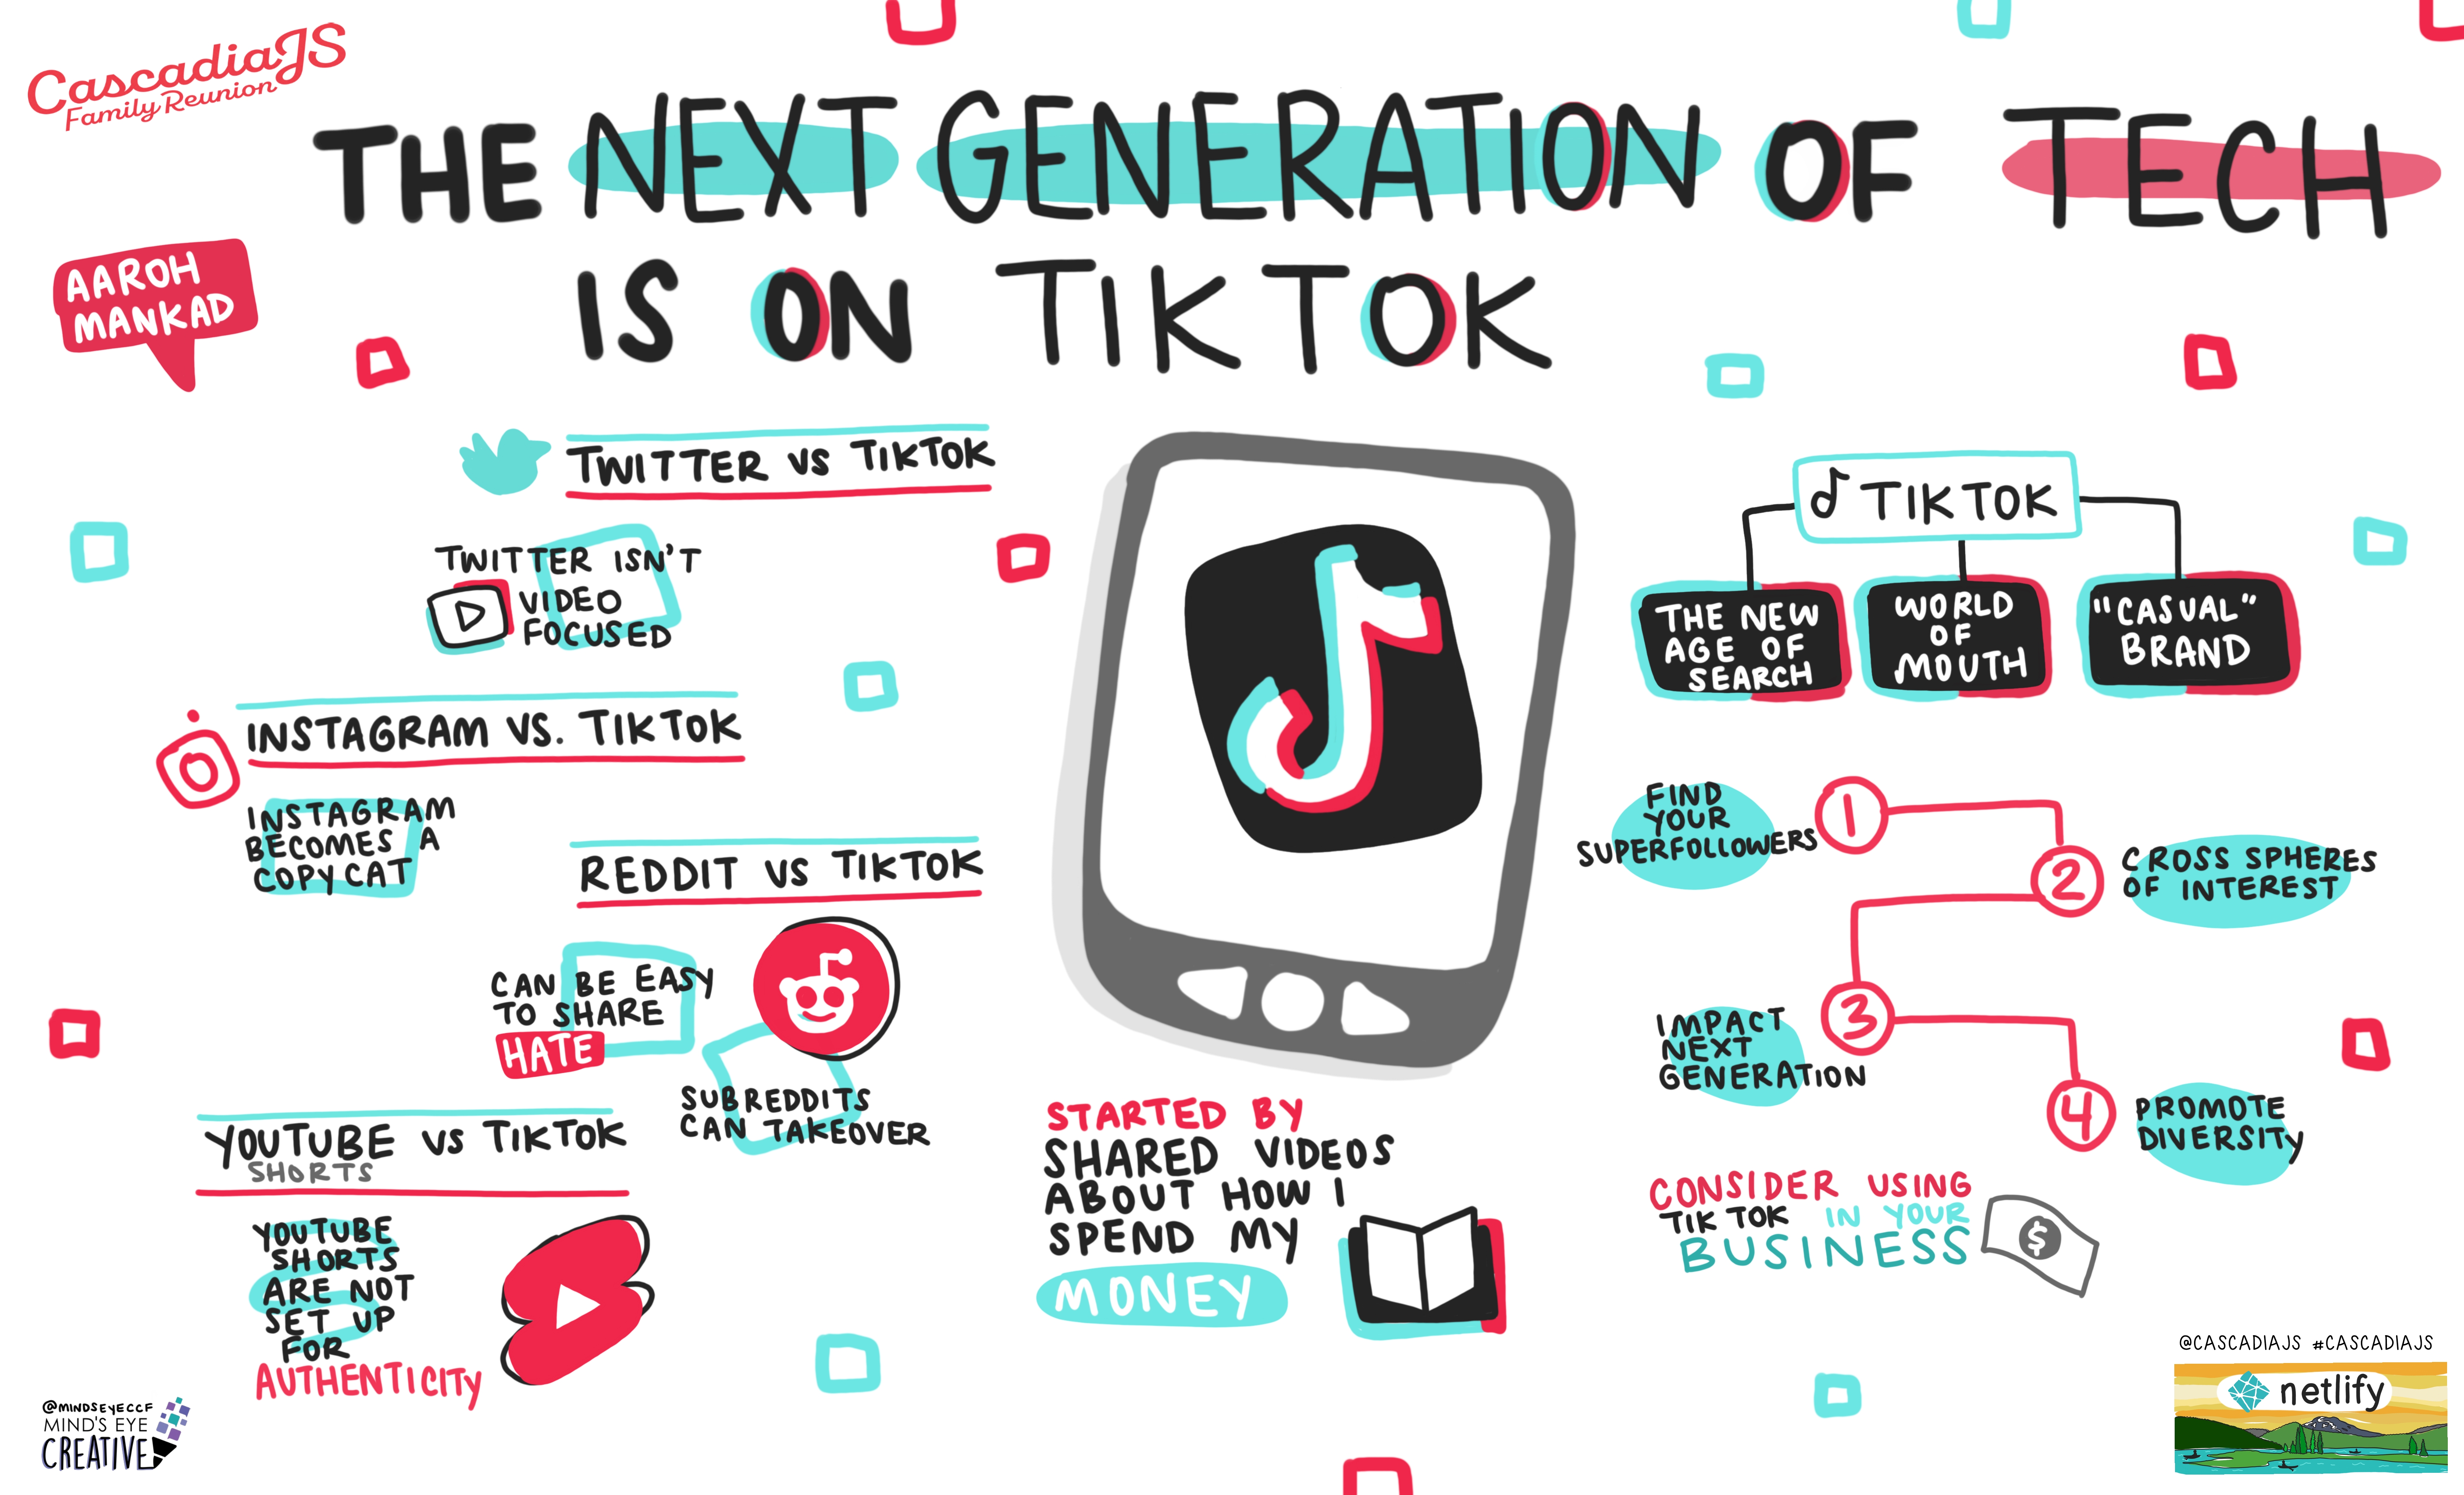 CascadiaJS
Family Reunion
THE NEXT GENERATION OF TECH
IS ON TIKTOK
AAROH
MANKAD
TWITTER VS TIKTOK
TWITTER ISN'T
VIDEO
FOCUSED
INSTAGRAM VS. TIKTOK
INSTAGRAM
BECOMES A
COPYCAT
REDDIT VS TIKTOK
CAN BE EASY
TO SHARE
HATE
SUBREDDITS
CAN TAKEOVER
YOUTUBE VS TIKTOK
SHORTS
YOUTUBE
SHORTS
ARE NOT
SET UP
FOR
AUTHENTICITY
STARTED BY
SHARED VIDEOS
ABOUT HOW I
SPEND MY
MONEY
TIKTOK
THE NEW
AGE OF
SEARCH
WORLD
OF
MOUTH
"CASUAL"
BRAND
FIND
YOUR
SUPERFOLLOWERS
1
2
CROSS SPHERES
OF INTEREST
IMPACT
NEXT
GENERATION
3
4
PROMOTE
DIVERSITY
CONSIDER USING
TIK TOK IN YOUR
BUSINESS
$
@MINDSEYECCF
MIND'S EYE
CREATIVE
@CASCADIAJS #CASCADIAJS
netlify